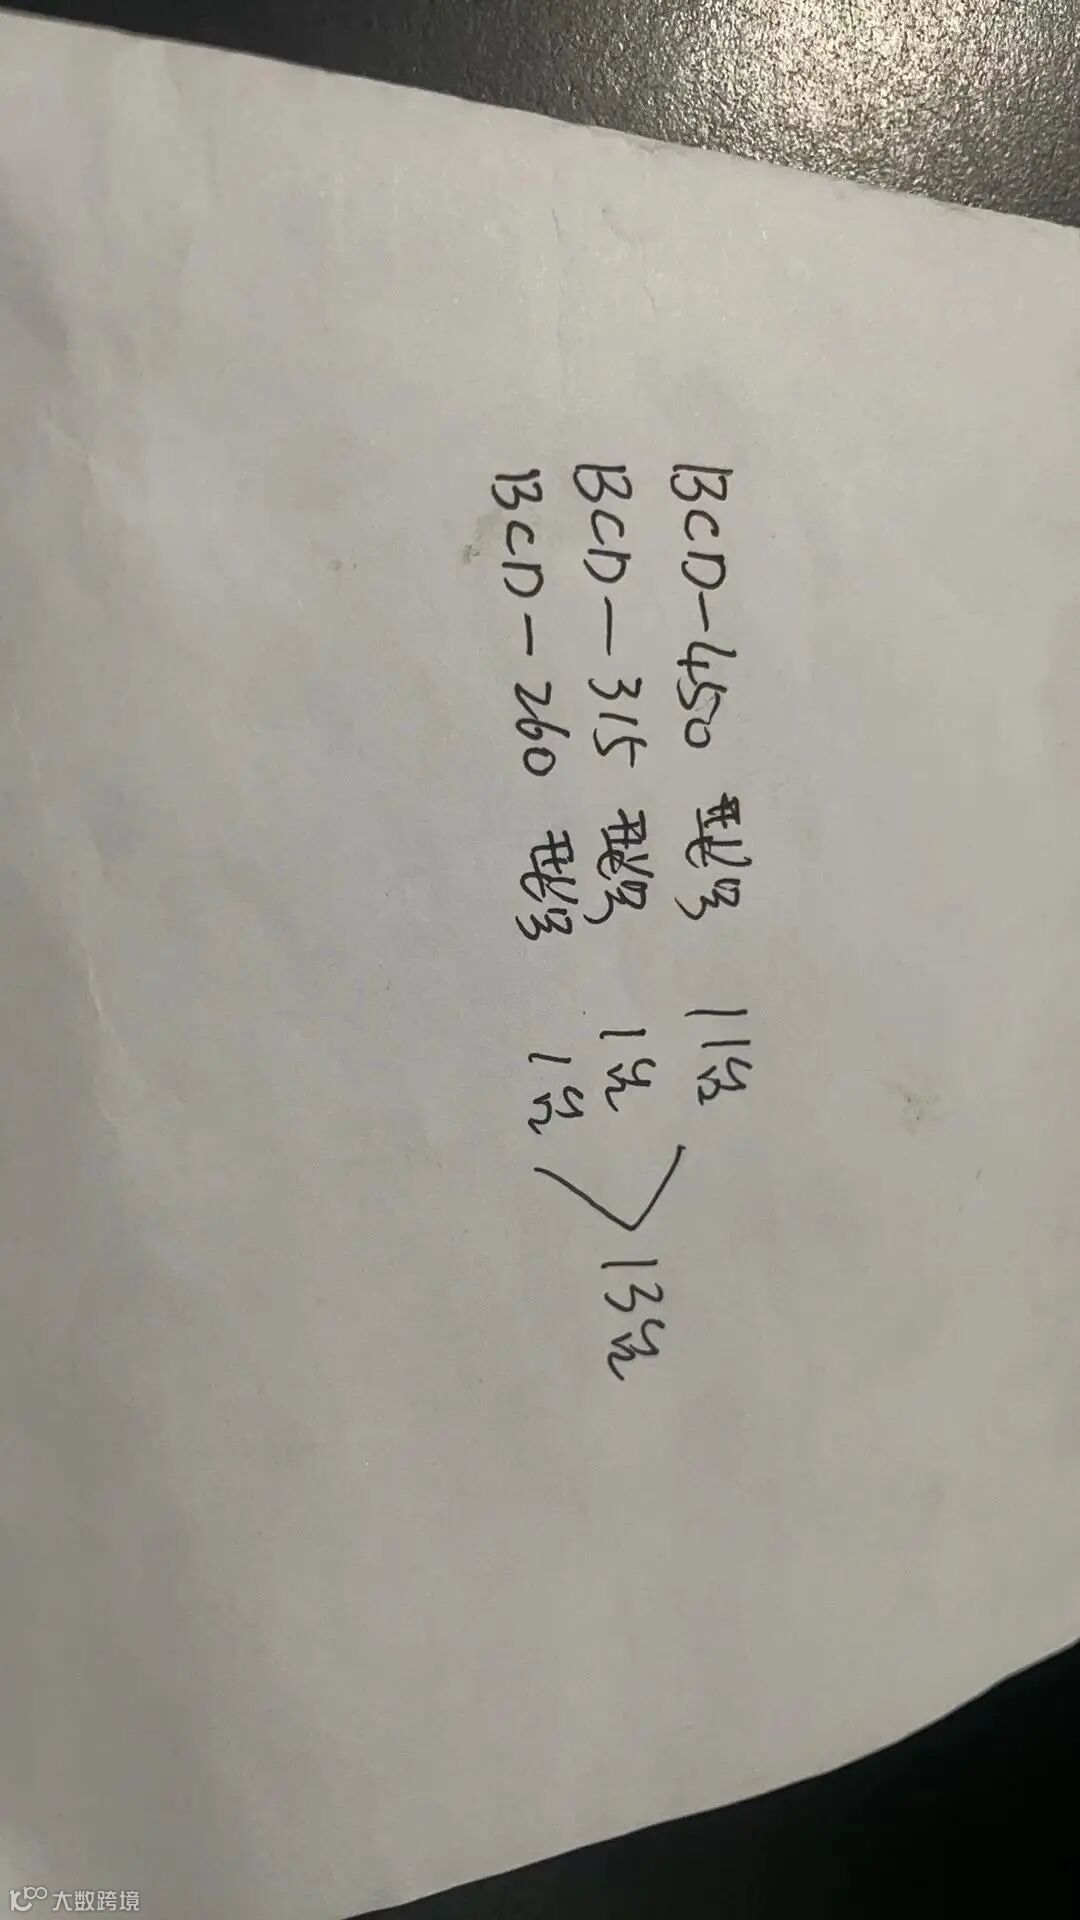 BCD-450 型号 11台
BCD-315 型号 1台
BCD-260 型号 1台
13台
大数跨境